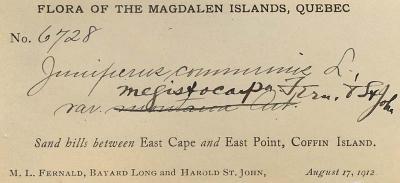 FLORA OF THE MAGDALEN ISLANDS, QUEBEC
No. 6728
Juniperus communis L.,
megistocarpa Fern. & St. John
var. montana Ait.
Sand hills between East Cape and East Point, COFFIN ISLAND.
M. L. FERNALD, BAYARD LONG and HAROLD ST. JOHN, August 17, 1912